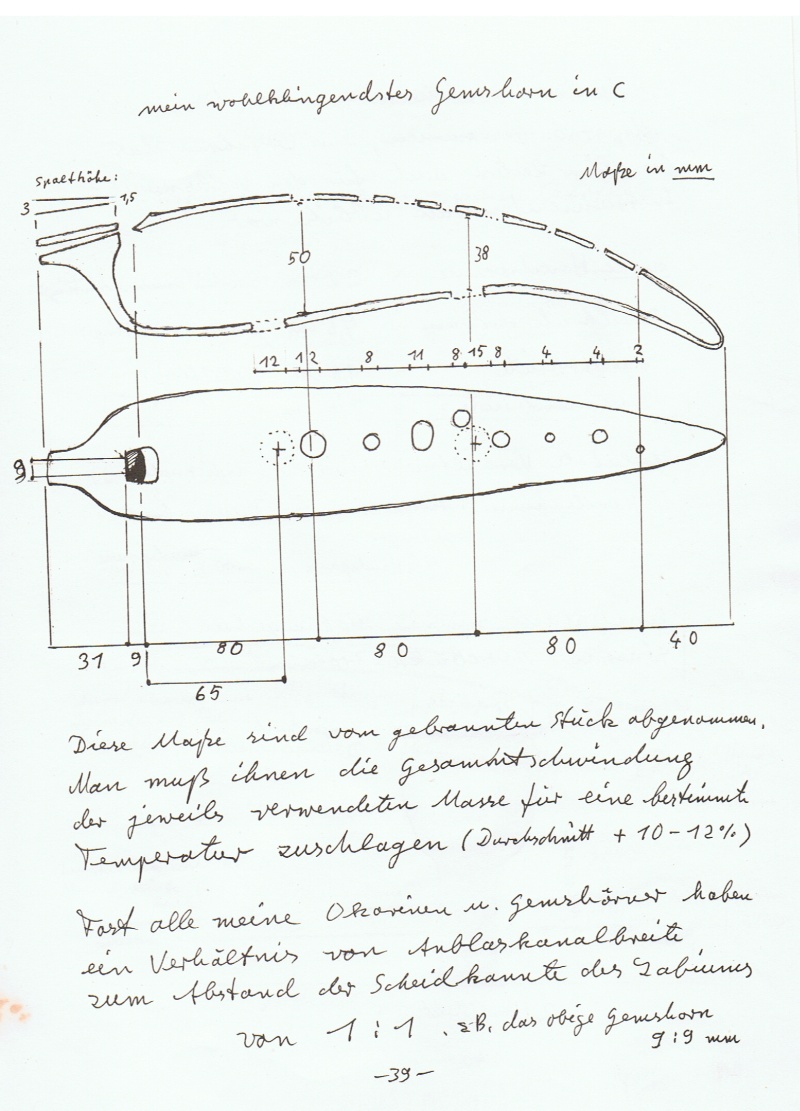 mein wohlklingendstes Gemshorn in C
Spalthöhe:
Maße in mm
3 1,5
50 38
12 12 8 11 8 15 8 4 4 2
9
31 9 80 80 80 40
65
Diese Maße sind vom gebrannten Stück abgenommen.
Man muß ihnen die Gesamtschwindung
der jeweils verwendeten Masse für eine bestimmte
Temperatur zuschlagen (Durchschnitt + 10-12%)
Fast alle meine Okarinen u. Gemshörner haben
ein Verhältnis von Anblaskanalbreite
zum Abstand der Scheidkannte des Labiums
von 1:1 . z.B. das obige Gemshorn
9:9 mm
-39-